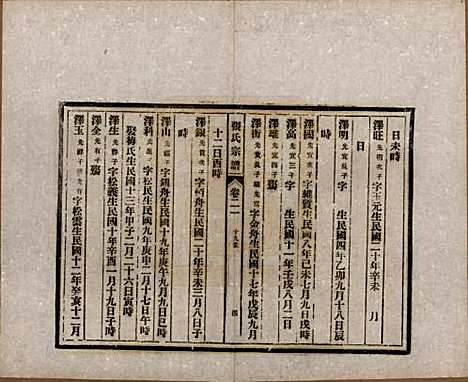 日未時
澤旺 光明次子 字玉元生民國二十年辛未 月
日
澤明 光宣子 生民國四年乙卯九月十八日辰
時
澤國 光宜次子 字總質生民國八年己未七月九日戌時
澤高 光宜三子 生民國十一年壬戌八月二日
澤雄 光宜四子 殤
澤衡 光宜子 字金舟生民國十七年戊辰九月
張氏宗譜 卷二二 四
十二日酉時
澤銀 光 次子 字 舟生民國二十年辛未三月八日子
時
澤山 光 次子 字釗舟生民國十九年庚午九月九日
澤科 光 子 字松民生民國九年庚申二月十七日午時
娶梅氏生民國十三年甲子二月二十六日寅時
澤生 光 子 字松義生民國十年辛酉一月十九日子時
澤金 光有子 殤
澤玉 光 子 字松雲生民國十二年癸亥十二月